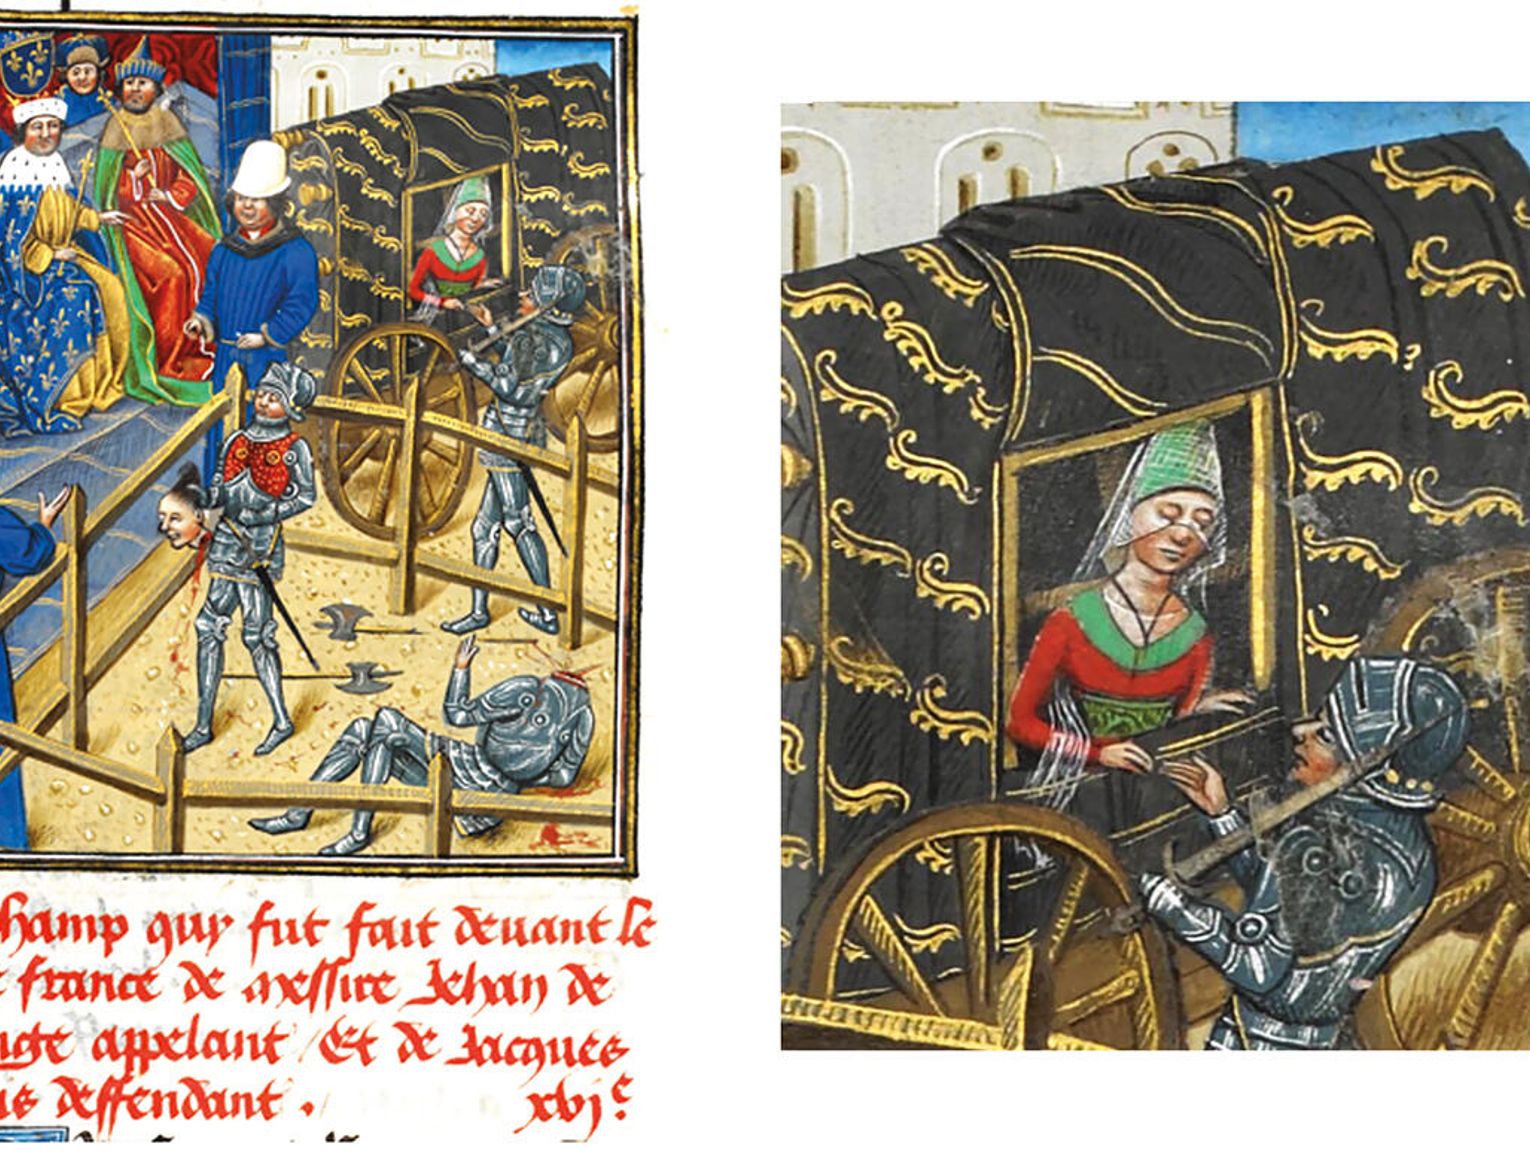 hamp quy fut fait deuant le
france de messire Jehan de
uge appelant / Et de Jacques
is deffendant . xvj e.